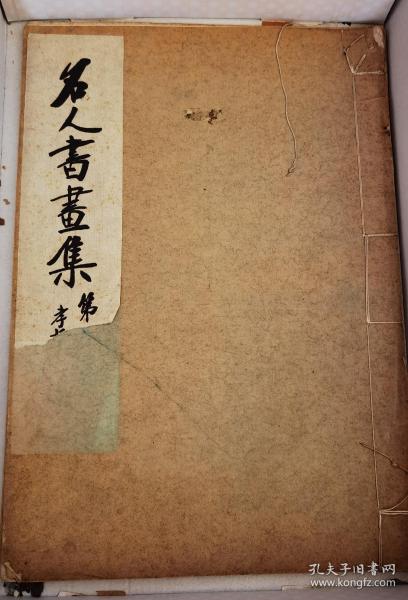 名人書畫集
第
孝
孔夫子旧书网
www.kongfz.com